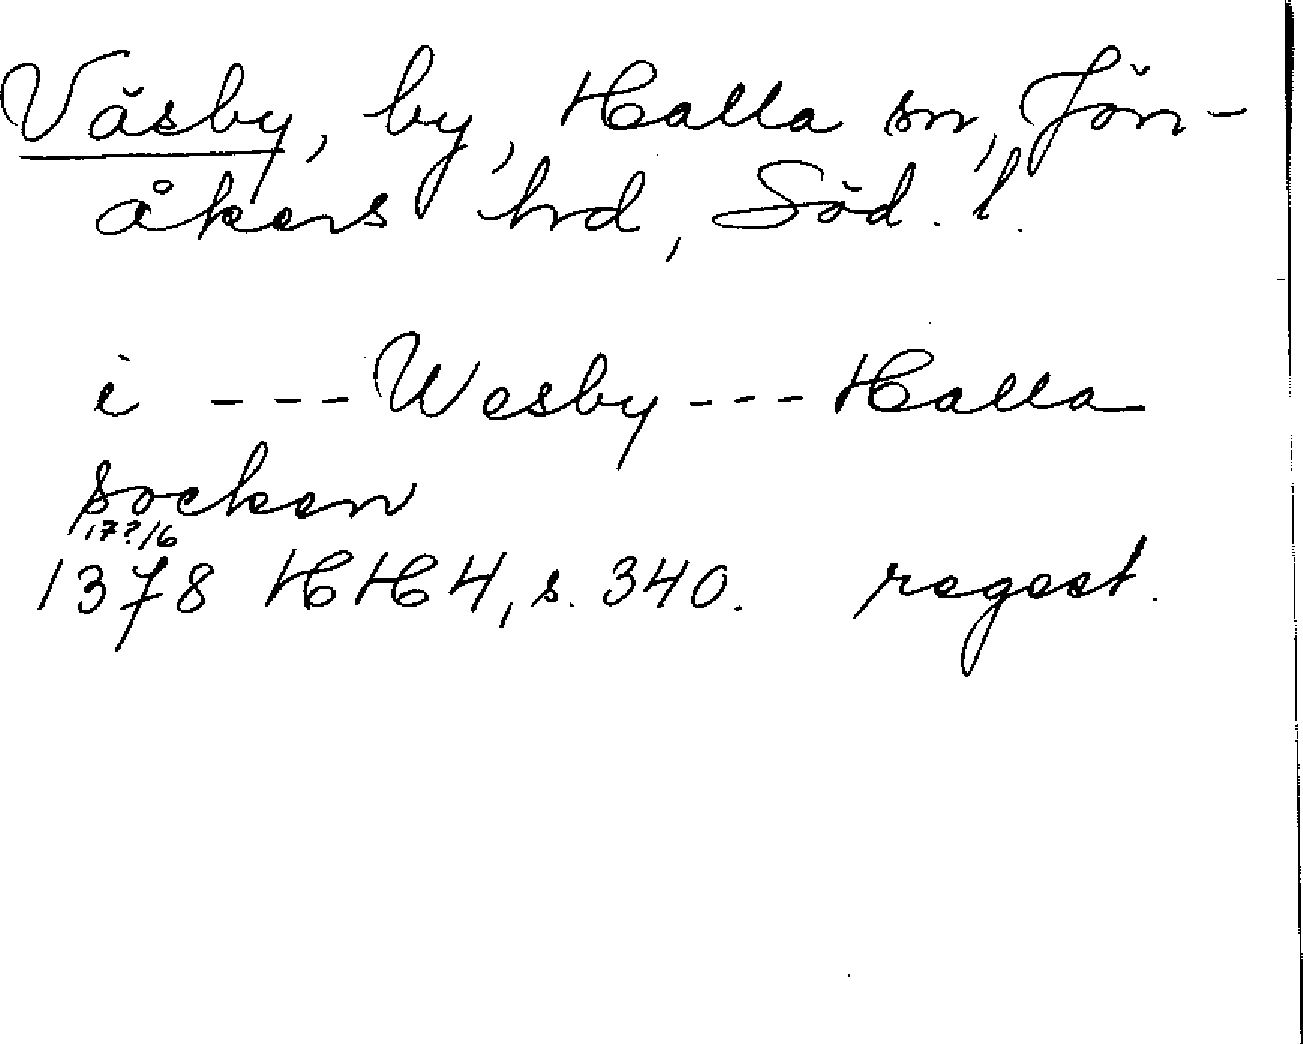 Väsby, by, Halla sn, Jön-
åkers hrd, Söd. l.
i --- Wesby --- Halla
socken
17?/6
1378 HH 4, s. 340. regest.